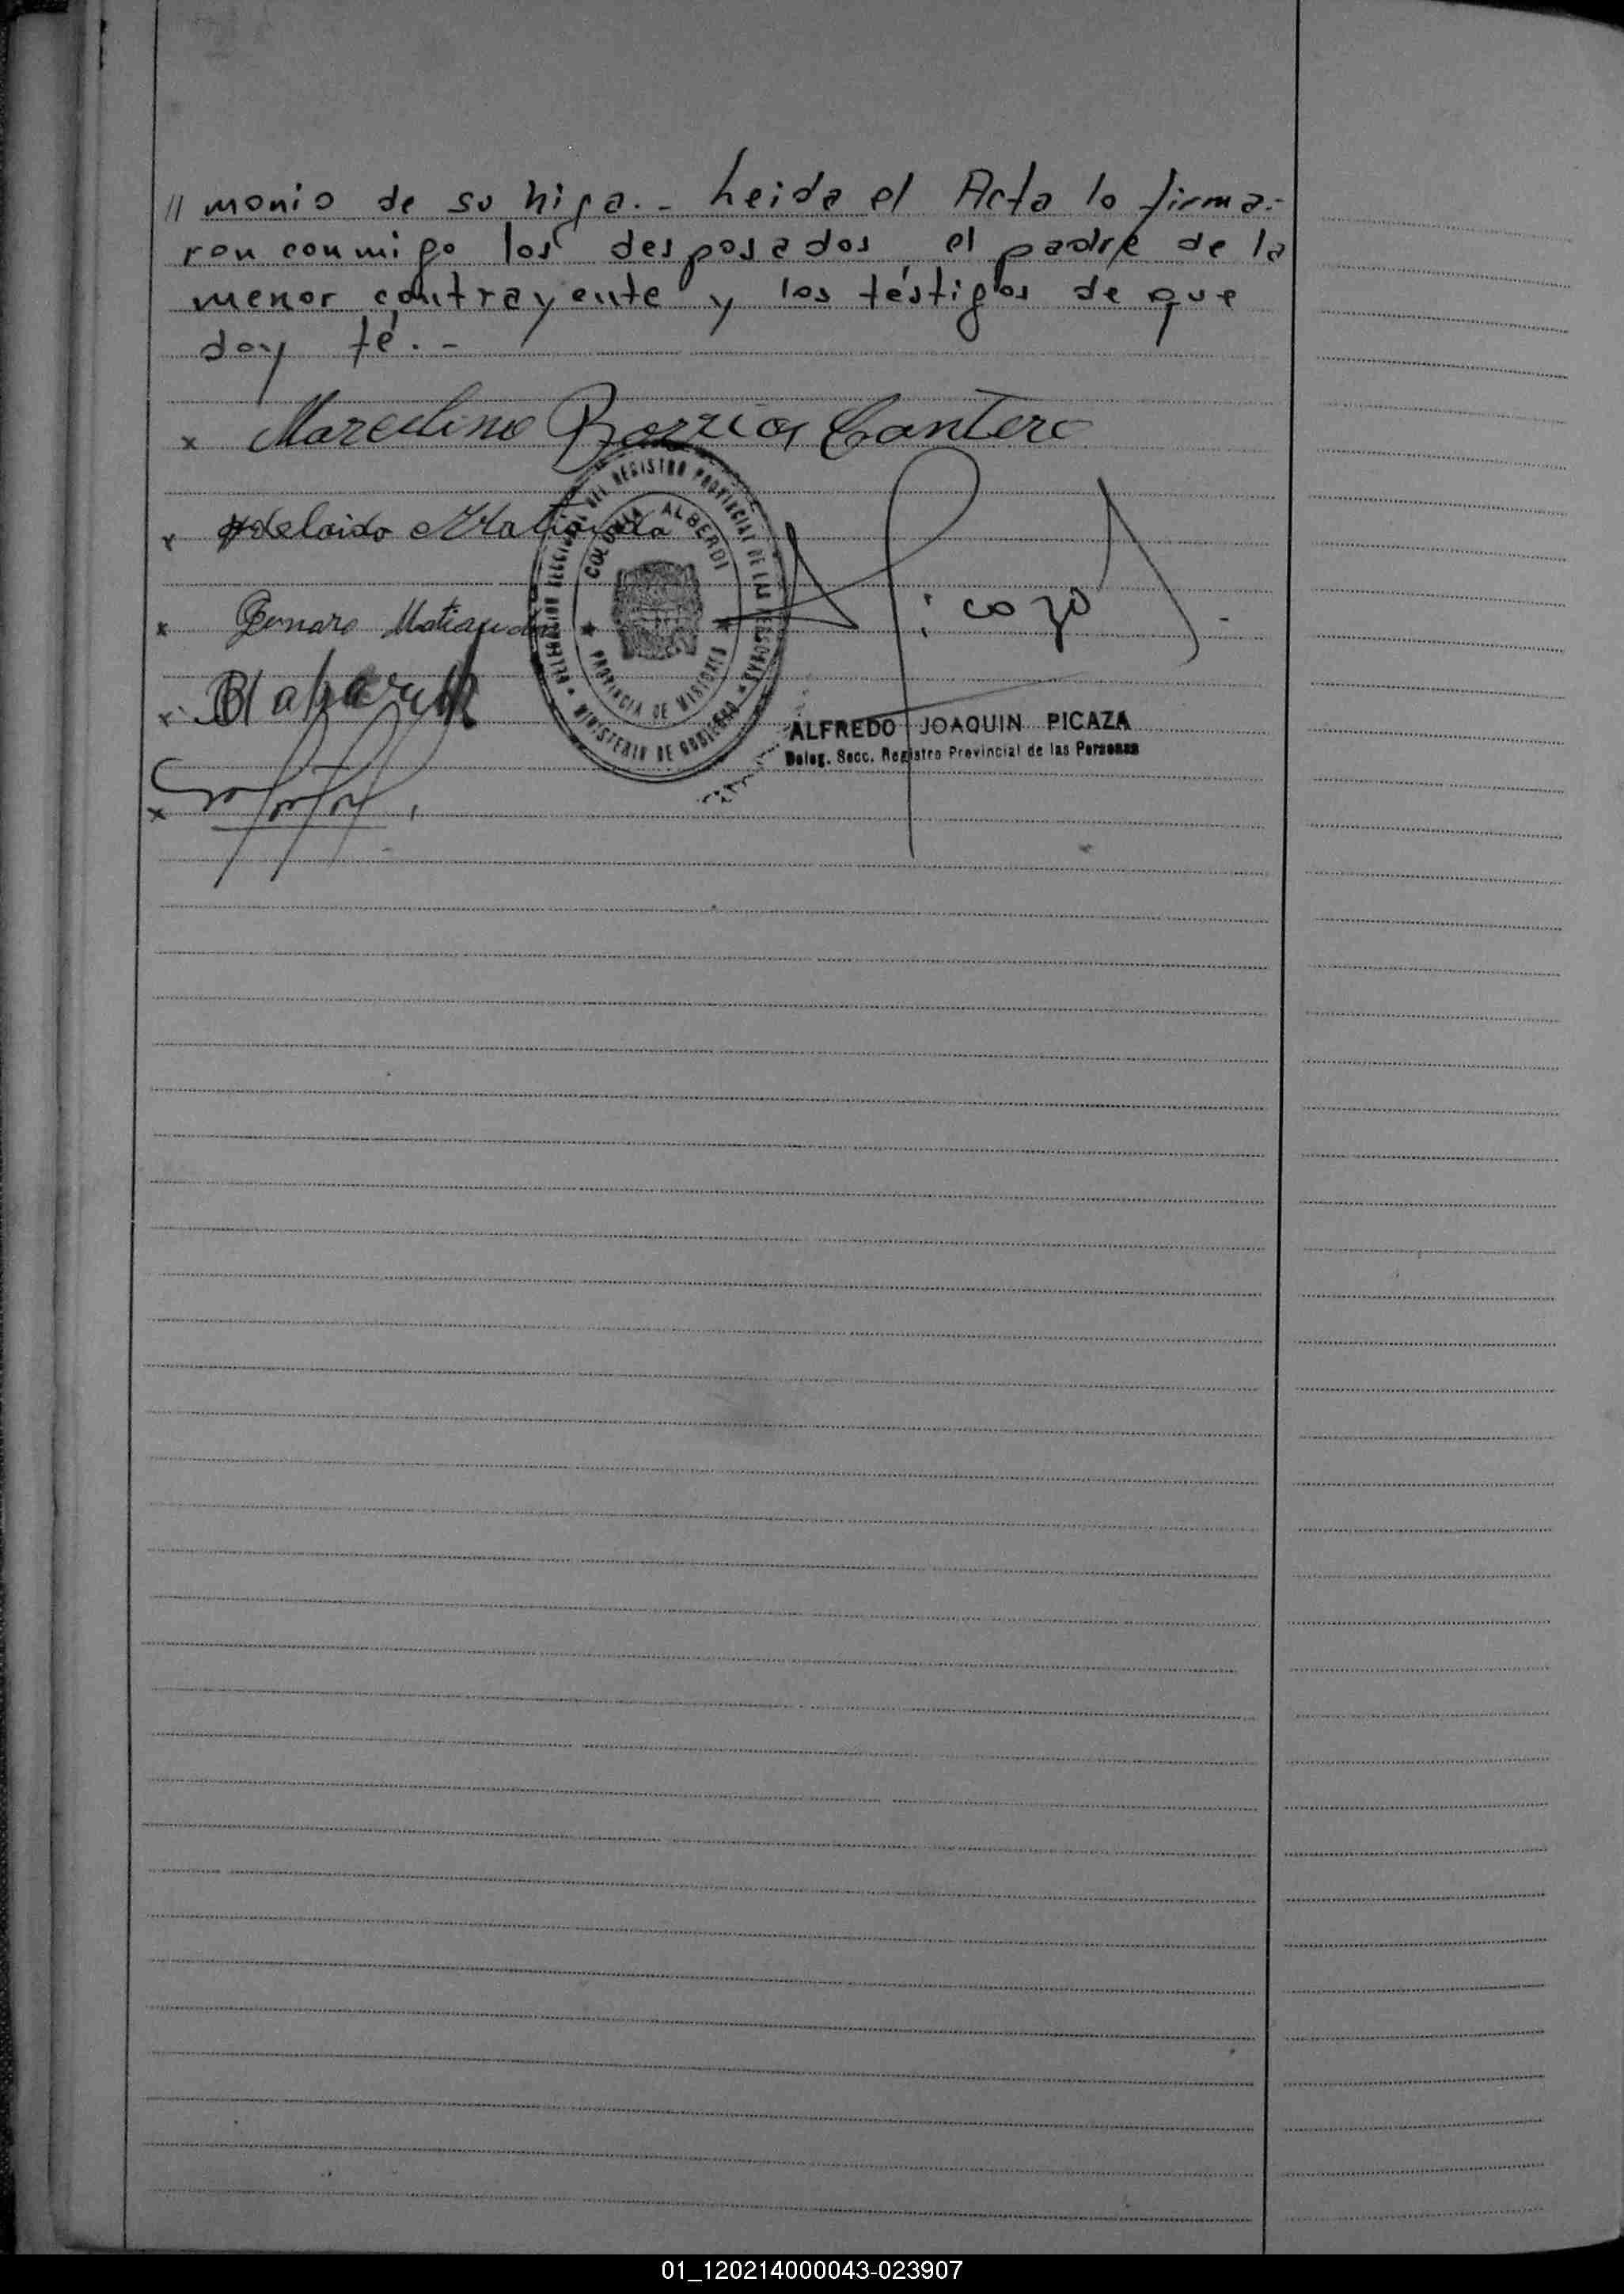 // monio de su hija.- Leida el Acta lo firma-
ron conmigo los desposados el padre de la
menor contrayente y los téstigos de que
doy fé.-
x Marcelino Barrios Cantero
x Adelaida Matiauda
x Genaro Matiauda
x
x
Picaza
DELEGACION SECCIONAL DEL REGISTRO PROVINCIAL DE LAS PERSONAS * MINISTERIO DE GOBIERNO *
COLONIA ALBERDI
PROVINCIA DE MISIONES
ALFREDO JOAQUIN PICAZA
Deleg. Secc. Registro Provincial de las Personas
01_120214000043-023907